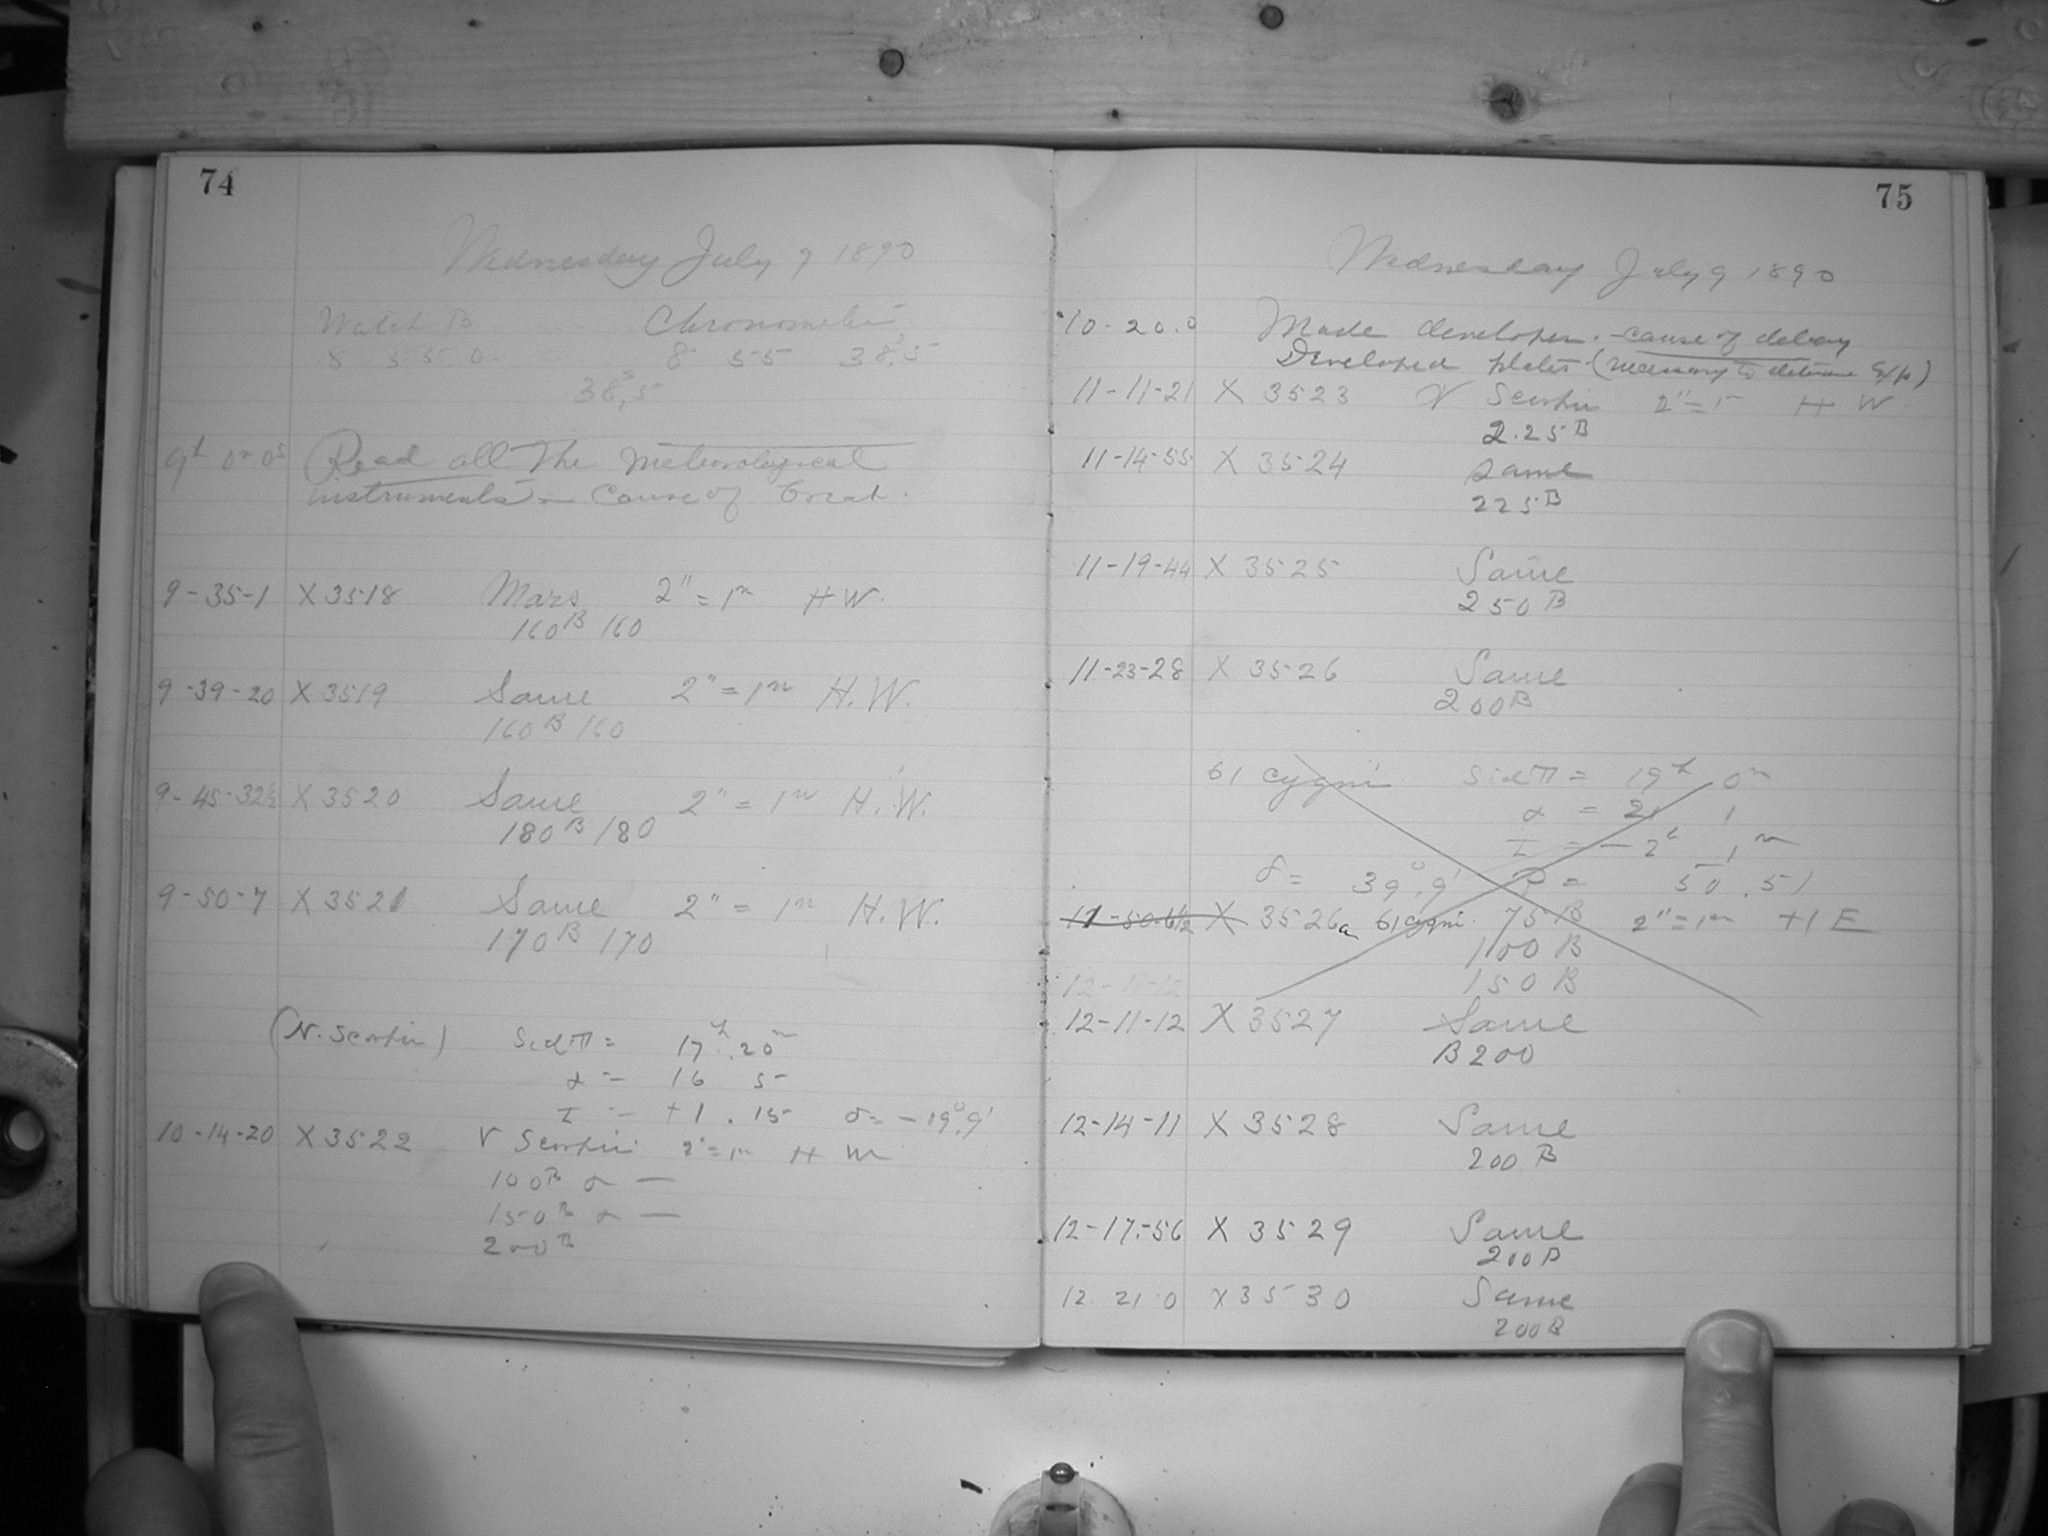 74
Wednesday July 9 1890
Watch B = Chronometer
8 55 0. 8 55 38.5
38.5
9h 0m 0s Read all the meteorological
instruments = cause of
9-35-1 X 3518 Mars 2" = 1m H W.
160 B 160
9-39-20 X 3519 Same 2" = 1m H. W.
160 B 160
9-45-32½ X 3520 Same 2" = 1m H. W.
180 B 180
9-50-7 X 3521 Same 2" = 1m H. W.
170 B 170
(N. Scorpii) Sid T = 17h. 20m
α = 16 5
I = +1. 15 δ = -19° 9'
10-14-20 X 3522 ν Scorpii 2" = 1m H W
100 B α —
150 B α —
200 B
75
Wednesday July 9 1890
10-20.0 Made developer. - cause of delay
Developed plates (necessary to determine Exp)
11-11-21 X 3523 ν Scorpii 2" = 1m H W.
2.25 B
11-14-55 X 3524 Same
225 B
11-19-44 X 3525 Same
250 B
11-23-28 X 3526 Same
200 B
61 Cygni Sid T = 19h 0m
α = 21 1
I = -2h 1m
δ = 39°.9' P = 50.51
11-50-6½ X 3526a 61 Cygni. 75 B 2" = 1m +1 E
100 B
12-11-12 150 B
12-11-12 X 3527 Same
B 200
12-14-11 X 3528 Same
200 B
12-17-56 X 3529 Same
200 B
12. 21 0 X 3530 Same
200 B